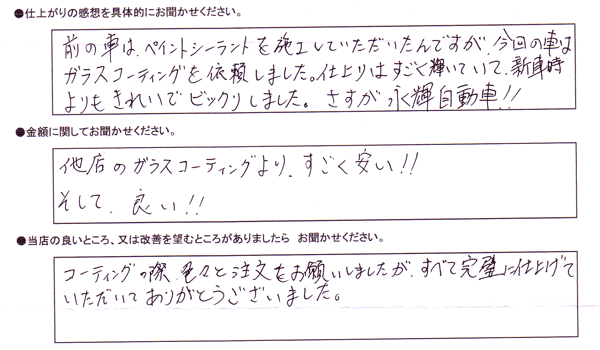 ●仕上がりの感想を具体的にお聞かせください。
前の車は、ペイントシーラントを施工していただいたんですが、今回の車は
ガラスコーティングを依頼しました。仕上りはすごく輝いていて、新車時
よりもきれいでビックリしました。さすが永輝自動車!!
●金額に関してお聞かせください。
他店のガラスコーティングより、すごく安い!!
そして、良い!!
●当店の良いところ、又は改善を望むところがありましたら お聞かせください。
コーティングの際、色々と注文をお願いしましたが、すべて完璧に仕上げて
いただいてありがとうございました。